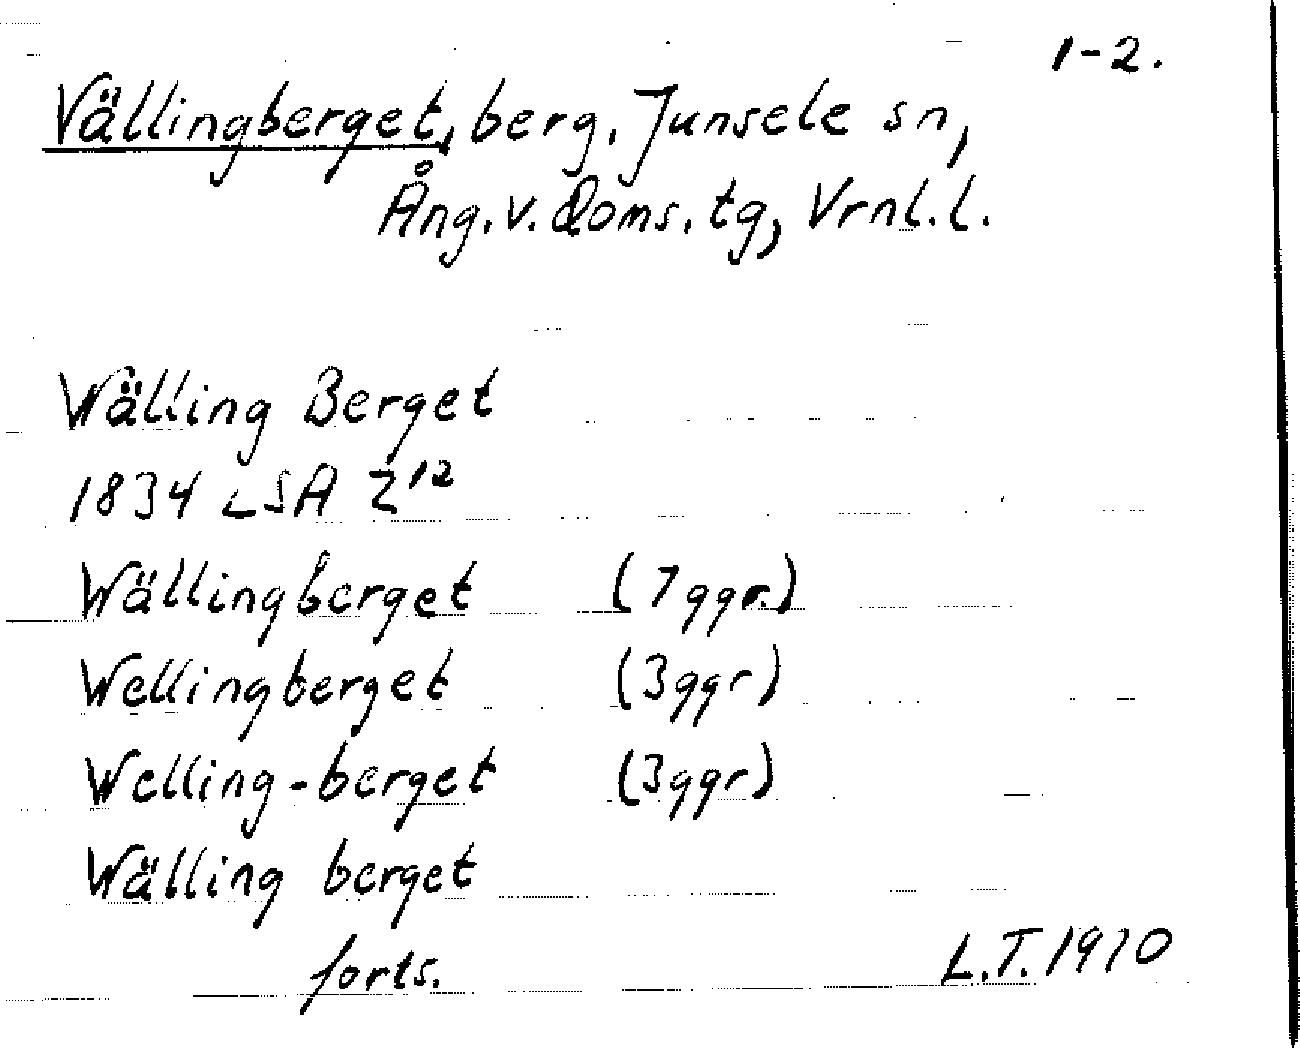 1-2.
Vällingberget, berg. Junsele sn,
Ång. v. Doms. tg, Vrnl. l.
Wälling Berget
1834 LSA Z¹²
Wällingberget (7 ggr.)
Wellingberget (3 ggr)
Welling-berget (3 ggr)
Wälling berget
forts. L.T. 1970